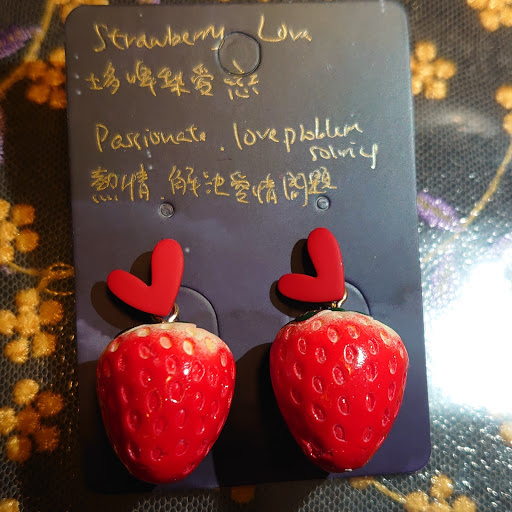 Strawberry Love
士多啤梨愛戀
Passionate. love problem
solving
熱情.解決愛情問題